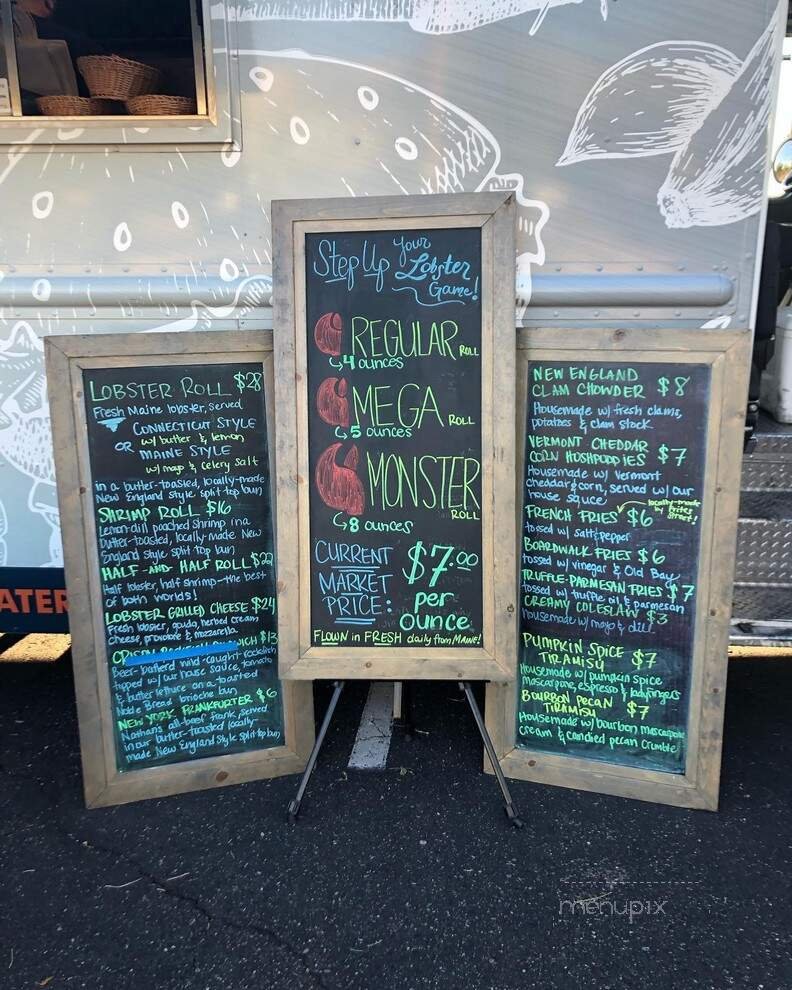 LOBSTER ROLL $28
Fresh Maine lobster, served
CONNECTICUT STYLE
w/ butter & lemon
OR MAINE STYLE
w/ mayo & celery salt
in a butter-toasted, locally-made
New England style split top bun
SHRIMP ROLL $16
Lemon-dill poached shrimp in a
butter-toasted, locally-made New
England style split top bun
HALF-AND-HALF ROLL $22
Half lobster, half shrimp-the best
of both worlds!
LOBSTER GRILLED CHEESE $24
Fresh lobster, gouda, herbed cream
cheese, provolone & mozzarella
CRISPY SANDWICH $13
Beer-battered wild-caught rockfish
topped w/ our house sauce, tomato
& butter lettuce on a toasted
Noble Bread brioche bun
NEW YORK FRANKFURTER $6
Nathan's all-beef frank, served
in our butter-toasted locally-
made New England Style split top bun
Step Up your
Lobster
Game!
REGULAR ROLL
4 ounces
MEGA ROLL
5 ounces
MONSTER
ROLL
8 ounces
CURRENT
MARKET
PRICE:
$7.00
per
ounce
FLOWN in FRESH daily from MAINE!
NEW ENGLAND
CLAM CHOWDER $8
Housemade w/ fresh clams,
potatoes & clam stock
VERMONT CHEDDAR
CORN HUSHPUPPIES $7
Housemade w/ Vermont
cheddar & corn, served w/ our
house sauce
locally-made
by Frites
Street!
FRENCH FRIES $6
tossed w/ salt & pepper
BOARDWALK FRIES $6
tossed w/ vinegar & Old Bay
TRUFFLE-PARMESAN FRIES $7
tossed w/ truffle oil & parmesan
CREAMY COLESLAW $3
Housemade w/ mayo & dill
PUMPKIN SPICE
TIRAMISU $7
Housemade w/ pumpkin spice
mascarpone, espresso & ladyfingers
BOURBON PECAN
TIRAMISU $7
Housemade w/ bourbon mascarpone
cream & candied pecan crumble
ATER
menupix